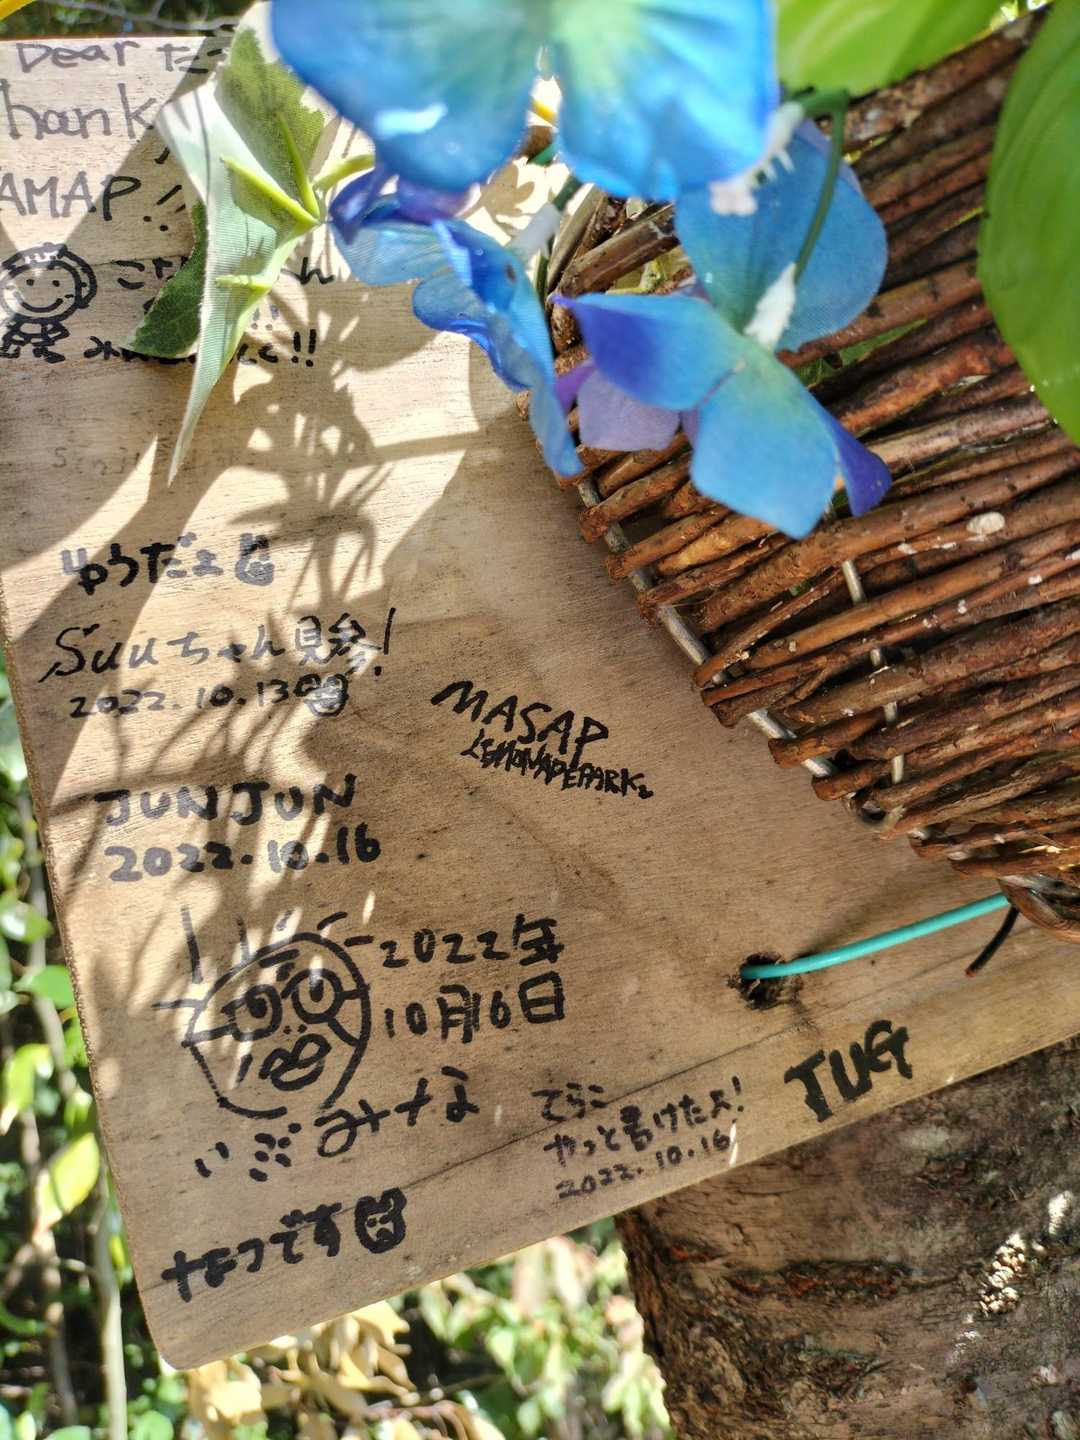 Dear
hank
AMAP!
!!
ゆうだよ
Suuちゃん見参!
2022.10.13
MASAP
LEMONADEPARK
JUNJUN
2022.10.16
2022年
10月16日
いぶみナな
てらこ
やっと書けたよ!
2022.10.16
TUG
なつです